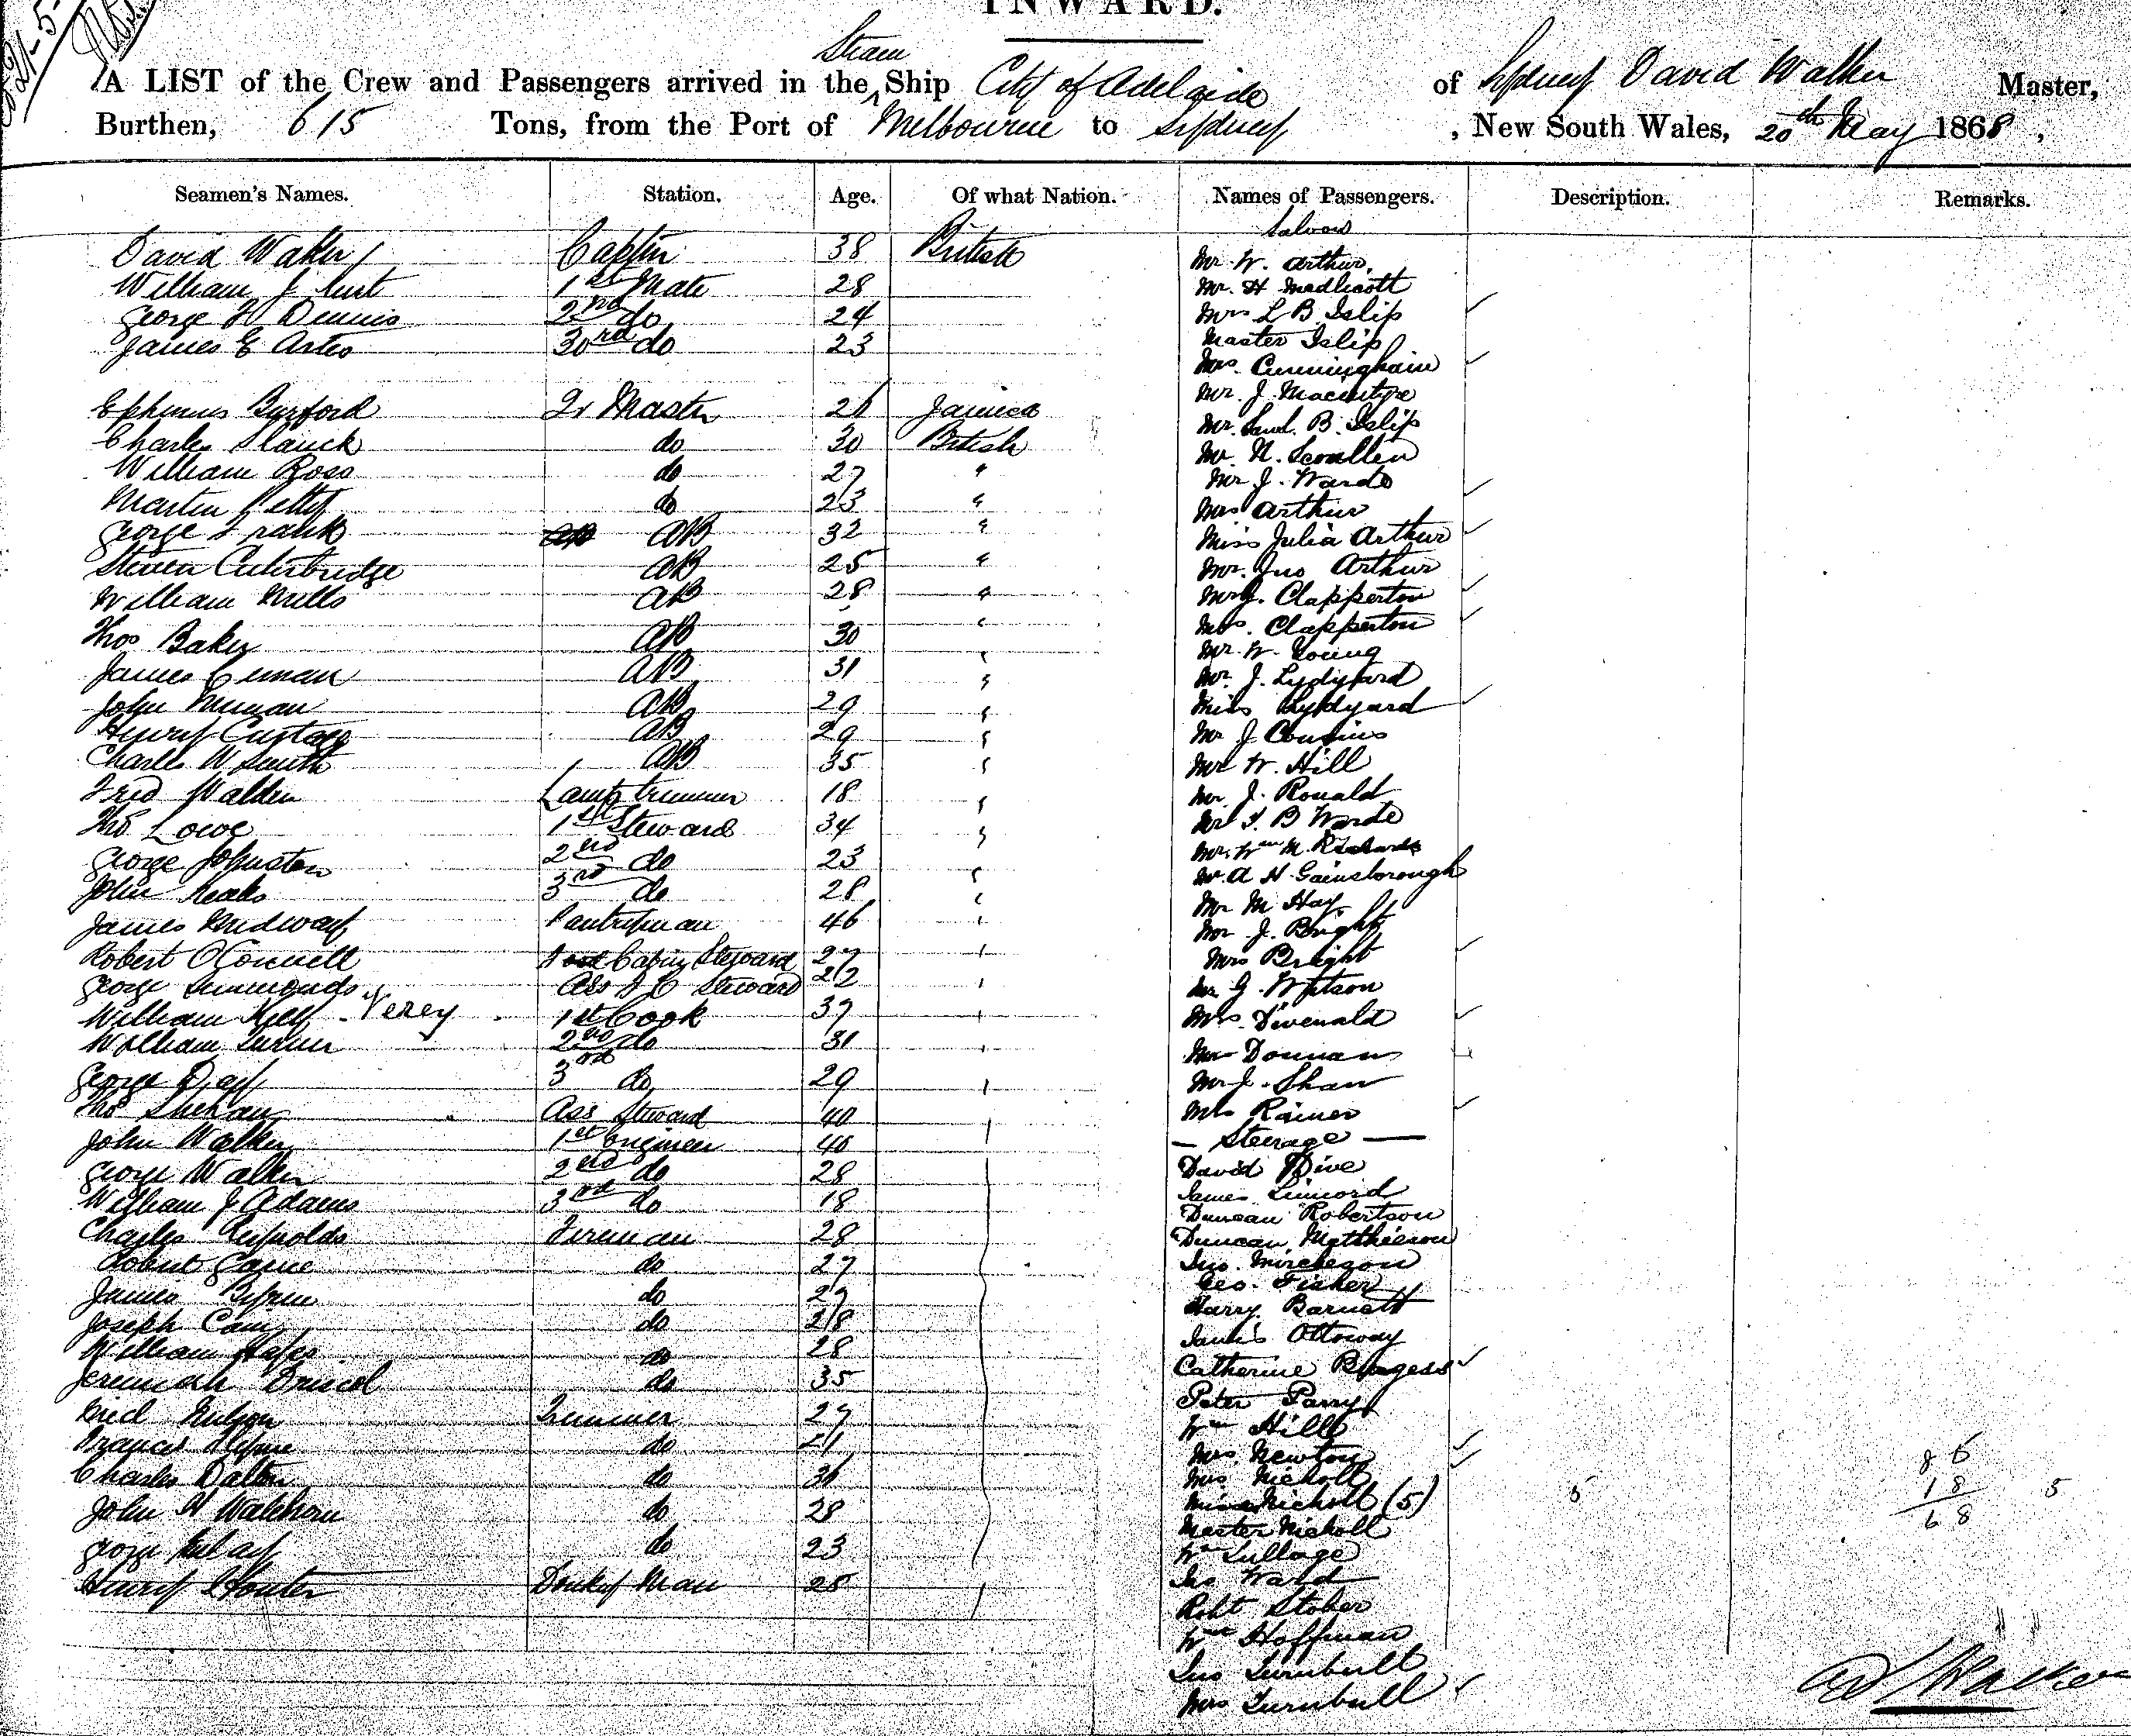 INWARD.
Steam
A LIST of the Crew and Passengers arrived in the Ship City of Adelaide of Sydney David Walker Master,
Burthen, 615 Tons, from the Port of Melbourne to Sydney, New South Wales, 20th May 1868,
Seamen's Names. Station. Age. Of what Nation. Names of Passengers. Description. Remarks.
Saloon
David Walker Captn 38 British Mr W. Arthur.
William J 1st Mate 28 Mr. H Medlicott
George W Dennis 2nd do 24 Mrs L B Islip
James E 3rd do 23 Master Islip
Mrs. Cunningham
Mr. J. Macintyre
Burford Qr Master 21 Jamica
Mr. Saml. B. Islip
Charles do 30 British Mr. N. Scoullen
William Ross do 27 " Mr J. Wardo
Martin Petty do 23 " Mrs Arthur
George Frank AB 32 " Miss Julia Arthur
Steven AB 25 " Mr. Jno Arthur
William Mills AB 28 " Mr J. Clapperton
" Mrs. Clapperton
Thos Baker AB 30 Mr. W. Young
James AB 31 " Mr. J. Lydyard
John AB 29 " Miss Lydyard
Henry AB 29 " Mr J Cousins
Charles W Smith AB 35 " Mr W. Hill
Fred Walden Lamp trimmer 18 " Mr. J. Ronald
Thos Lowe 1st Steward 34 " Mr B Warde
George Johnston 2nd do 23 Mr. Wm M. Richards
John 3rd do 28 " Mr. A H Gainsborough
James Midway Pantryman 46 " Mr M Hay
Mr J. Bright
Robert OConnell Cabin Steward 27 " Mrs Bright
George Simmonds Ass Steward 22 " Mr G. Watson
William Kelly Verey 1st Cook 37 " Mrs.
William Turner 2nd do 31 " Mr Donnan
George Day 3rd do 29 " Mr J. Shaw
Thos Shehan Ass Steward 40 Mrs Rainer
John Walker 1st Engineer 40 — Steerage —
George Walker 2nd do 28 David Dive
William J Adams 3rd do 18 James
Duncan Robertson
Charles Reynolds Fireman 28 Duncan Matthieson
Robert do 27 Jno.
Geo. Fisher
James Byrne do 27 Harry Barnett
Joseph do 28 James Ottoway
William Hayes do 28 Catherine Burgess
Jeremiah Driscol do 35 Peter Parry
Fred Trimmer 27 Wm Hill
Frances do 21 Mrs. Newton
Charles Dalton do 36 Mrs Nicholl 86
John do 28 Miss Nicholl (5) 5 18 5
Master Nicholl 68
George do 23 Wm Tullage
Henry Donkey Man 25 Jno Ward
Robt Stober
Wm Hoffman
Jno Turnbull
Mrs Turnbull